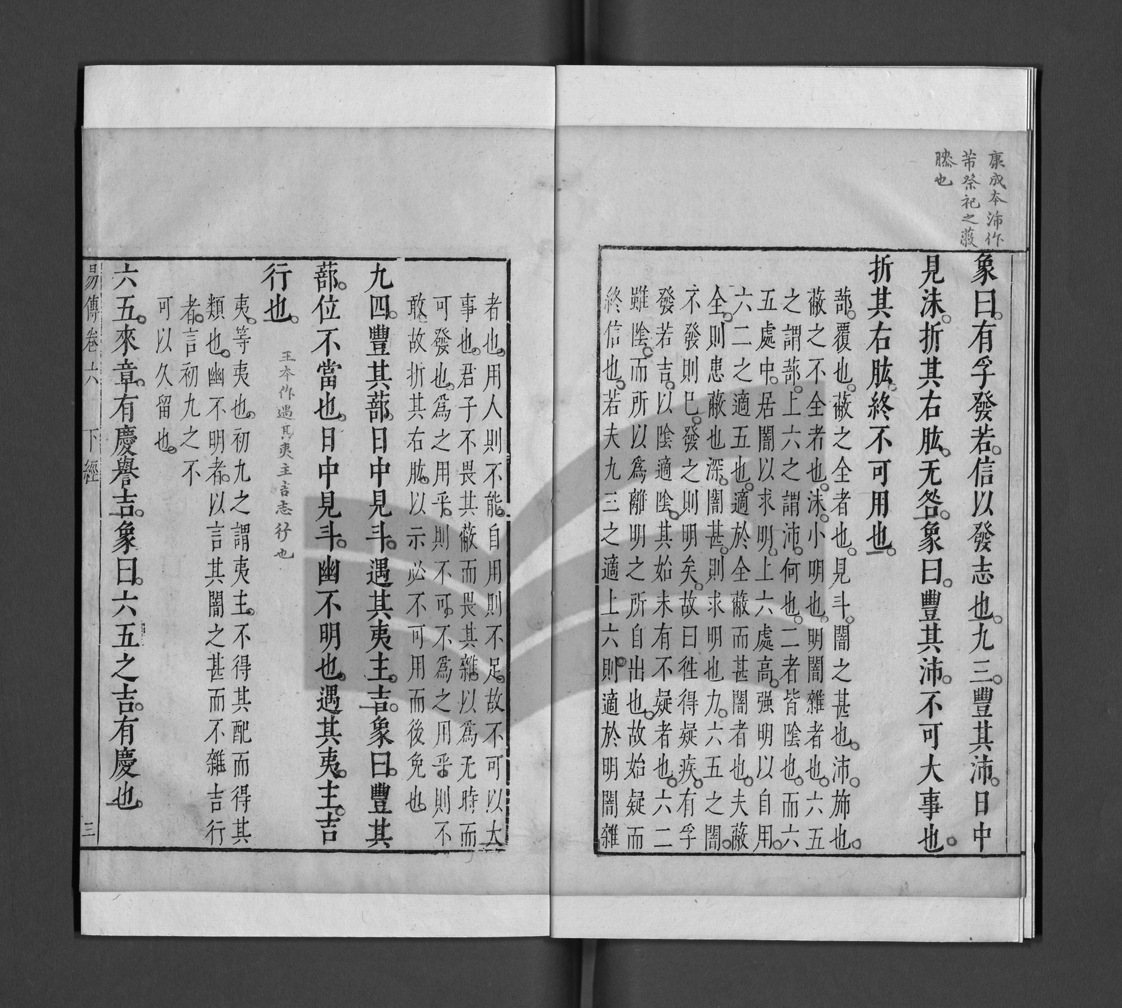 康成本沛作
芾祭祀之蔽
膝也
象曰有孚發若信以發志也九三豐其沛日中
見沬折其右肱无咎象曰豐其沛不可大事也
折其右肱終不可用也
蔀覆也蔽之全者也見斗闇之甚也沛斾也
蔽之不全者也沬小明也明闇雜者也六五
之謂蔀上六之謂沛何也二者皆陰也而六
五處中居闇以求明上六處高强明以自用
六二之適五也適於全蔽而甚闇者也夫蔽
全則患蔽也深闇甚則求明也力六五之闇
不發則已發之則明矣故曰徃得疑疾有孚
發若吉以陰適陰其始未有不疑者也六二
雖陰而所以爲離明之所自出也故始疑而
終信也若夫九三之適上六則適於明闇雜
者也用人則不能自用則不足故不可以大
事也君子不畏其蔽而畏其雜以爲无時而
可發也爲之用乎則不可不爲之用乎則不
敢故折其右肱以示必不可用而後免也
九四豐其蔀日中見斗遇其夷主吉象曰豐其
蔀位不當也日中見斗幽不明也遇其夷主吉
行也
王本作遇其夷主吉志行也
夷等夷也初九之謂夷主不得其配而得其
類也幽不明者以言其闇之甚而不雜吉行
者言初九之不
可以久留也
六五來章有慶譽吉象曰六五之吉有慶也
易傳卷六 下經 三